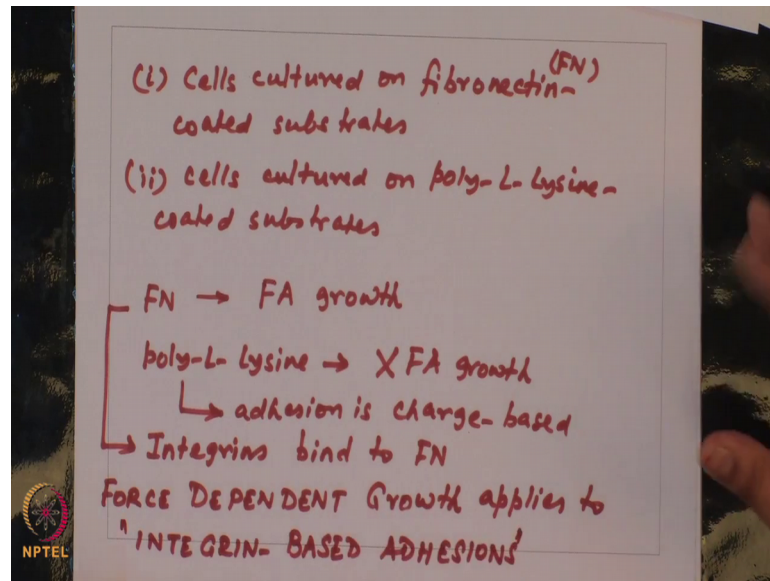 (i) Cells cultured on fibronectin- (FN)
coated substrates
(ii) cells cultured on poly-L-Lysine-
coated substrates
FN → FA growth
poly-L-Lysine → X FA growth
↳ adhesion is charge-based
→ Integrins bind to FN
FORCE DEPENDENT Growth applies to
"INTEGRIN-BASED ADHESIONS"
NPTEL